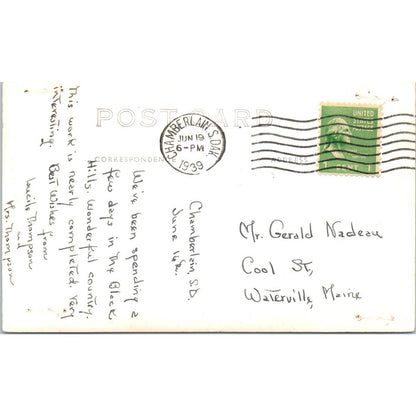 POST CARD
CORRESPONDENCE
ADDRESS
CHAMBERLAIN, S.DAK.
JUN 19
6-PM
1939
UNITED
STATES
POSTAGE
1 1
Chamberlain, S.D.
June
We've been spending a
few days in the Black
Hills. Wonderful country.
This work is nearly completed. Very
interesting. Best Wishes from
Lucile Thompson
Mrs Thompson
Mr. Gerald Nadeau
Cool St,
Waterville, Maine